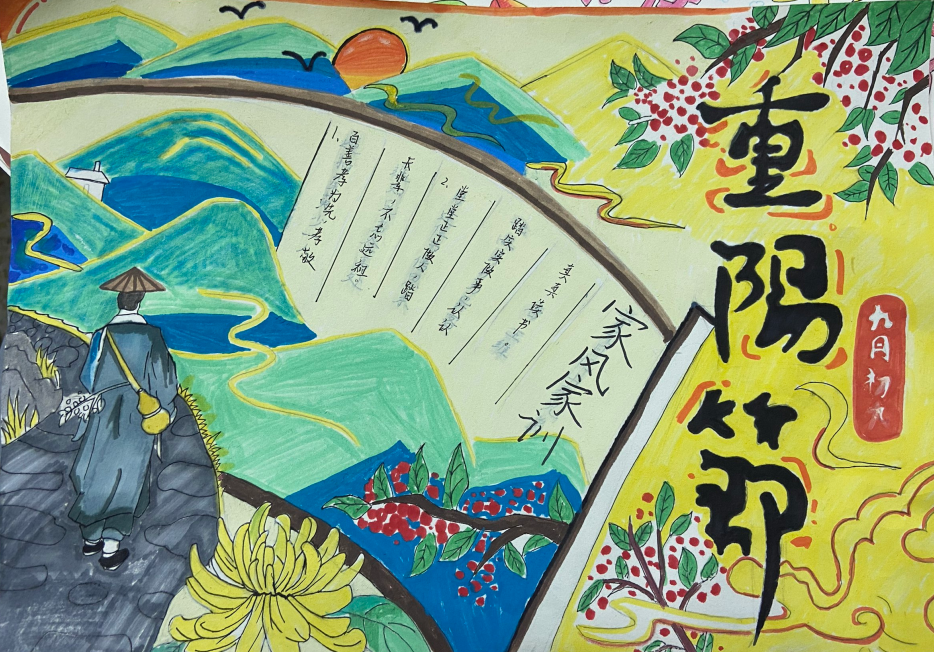 重陽節
九月初九
家风家训
1、百善孝为先,孝敬
长辈,不忘远祖。
2、堂堂正正做人,踏
踏实实做事,认认
真真读书。